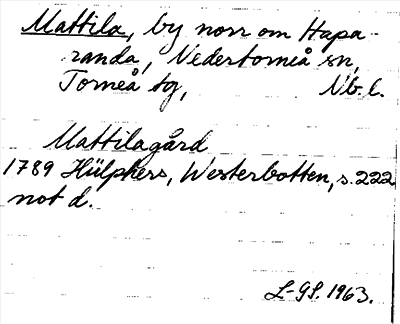 Mattila, by norr om Hapa-
randa, Nedertorneå sn,
Torneå tg, Nb. l.
Mattilagård
1789 Hülphers, Westerbotten, s. 222
not d.
L-GL. 1963.